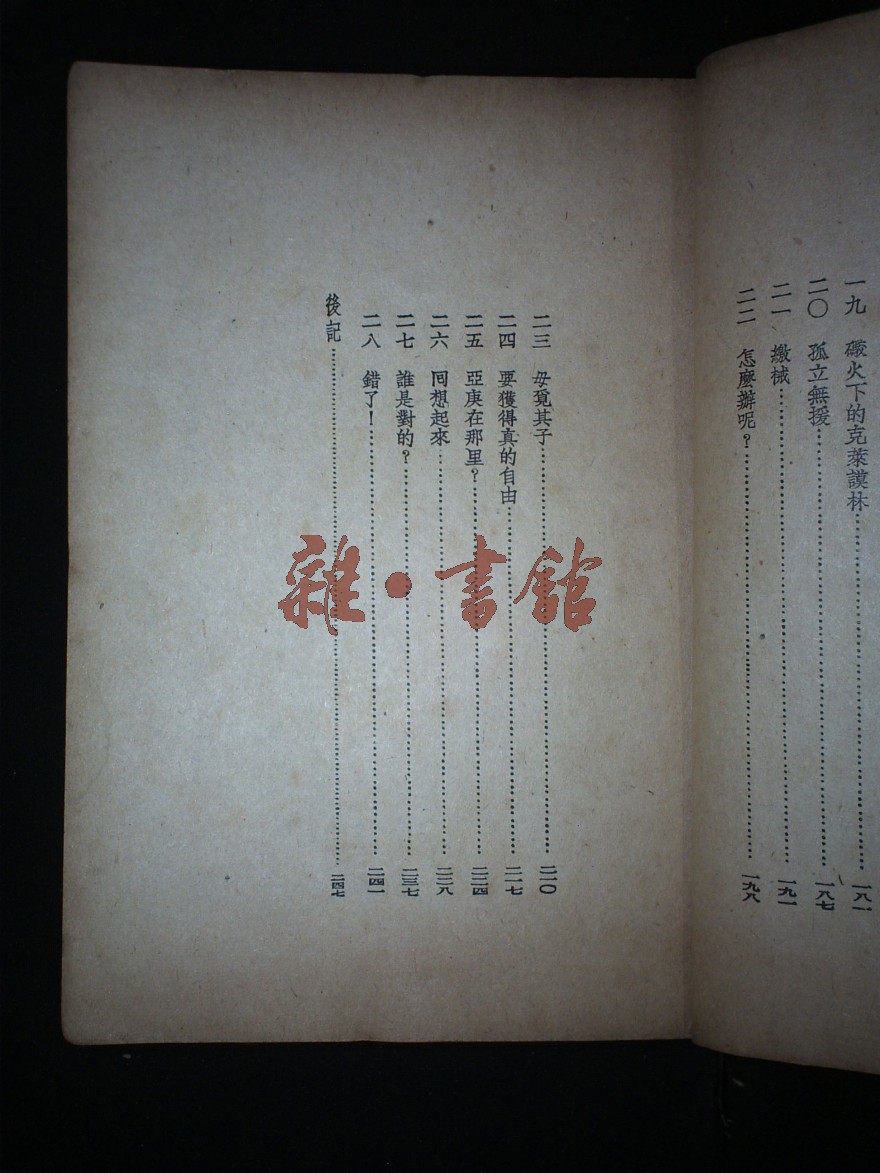 一九 礮火下的克萊謨林……一八一
二〇 孤立無援……一八七
二一 繳械……一九一
二二 怎麼辦呢？……一九八
二三 毋覓其子……二一〇
二四 要獲得真的自由……二一七
二五 亞庚在那里？……二二四
二六 囘想起來……二二八
二七 誰是對的？……二三七
二八 錯了！……二四一
後記……二四七
雜·書館